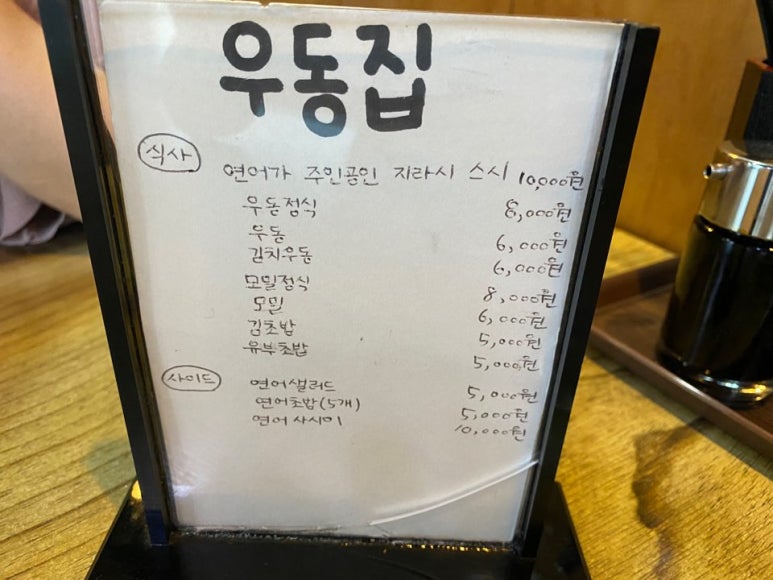 우동집
식사
연어가 주인공인 지라시 스시 10,000원
우동정식 8,000원
우동 6,000원
김치우동 6,000원
모밀정식 8,000원
모밀 6,000원
김초밥 5,000원
유부초밥 5,000원
사이드
연어샐러드 5,000원
연어초밥(5개) 5,000원
연어 사시미 10,000원